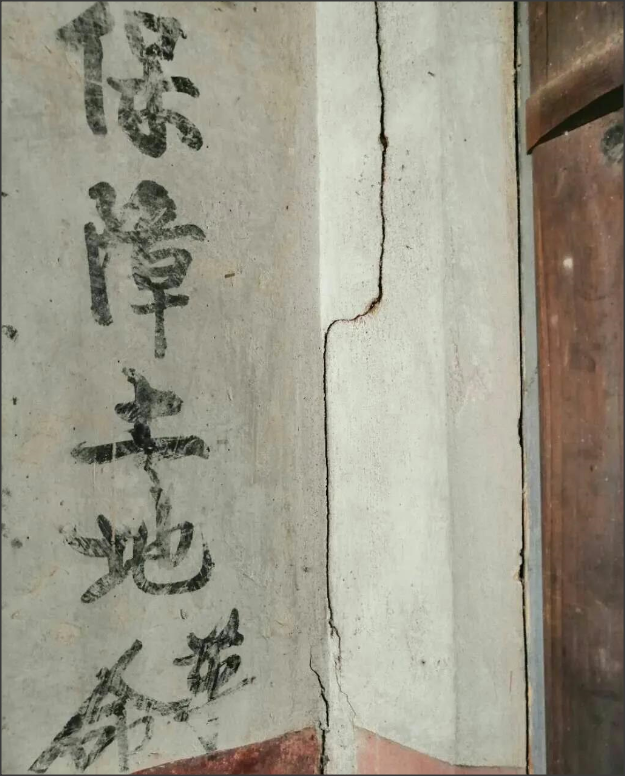 保障土地革命